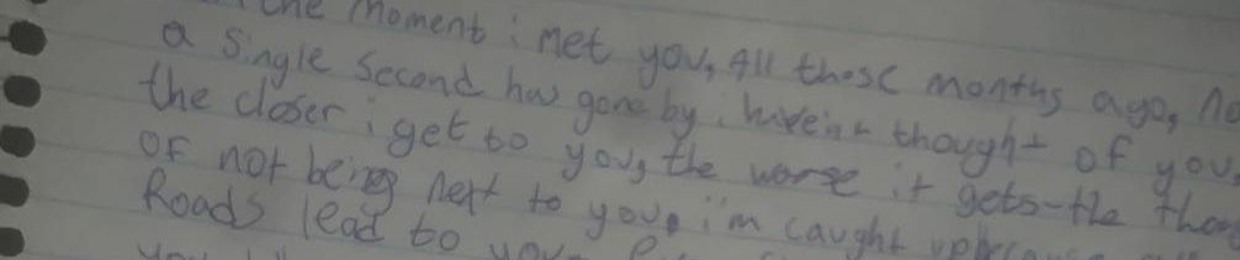 the moment i met you, All those months ago, no
a single second has gone by i haven't thought of you.
the closer i get to you, the worse it gets-the thou
OF not being next to you. i'm caught up because all
Roads lead to you.
you